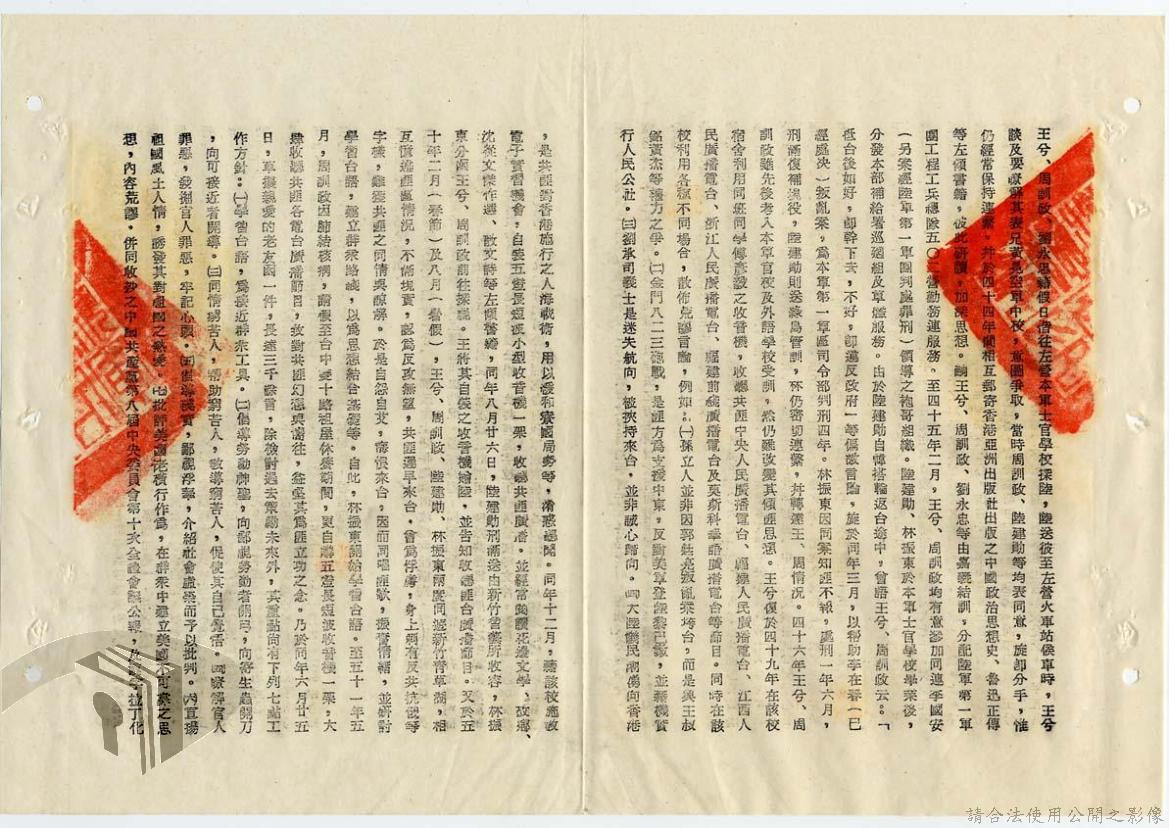 王兮、周訓政、劉永忠藉假日偕往左營本軍士官學校探陸，陸送彼至左營火車站候車時，王兮
談及要瞭解其表兄黃昆空軍中校，意圖爭取，當時周訓政、陸建勛等均表同意，旋即分手，惟
仍經常保持連繫，并於四十四年間相互郵寄香港亞洲出版社出版之中國政治思想史、魯迅正傳
等左傾書籍，彼此研讀，加深思想。嗣王兮、周訓政、劉永忠等由嘉義結訓，分配陸軍第一軍
團工程工兵總隊五〇二營勤務連服務。至四十五年二月，王兮、周訓政均有意參加同連李國安
（另案經陸軍第一軍團判處罪刑）領導之袍哥組織。陸建勛、林振東於本軍士官學校畢業後，
分發本部補給署巡迴組及草
低台後如好，即幹下去，不好，即邁反政府一等偏激言論，旋於同年三月，以幫助李在春（已
經處決）叛亂案，為本軍第一軍區司令部判刑四年。林振東因同案知匪不報，處刑一年六月，
刑滿復補現役，陸建勛則送綠島管訓，林仍密切連繫，并轉達王、周情況。四十六年王兮、周
訓政雖先後考入本軍官校及外語學校受訓，然仍難改變其傾匪思想。王兮復於四十九年在該校
宿舍利用同班同學傅彥毅之收音機，收聽共匪中央人民廣播電台、福建人民廣播電台、江西人
民廣播電台、浙江人民廣播電台、福建前綫廣播電台及莫斯科華語廣播電台等節目。同時在該
校利用各種不同場合，散佈荒謬言論，例如：㈠孫立人並非因郭廷亮叛亂案垮台，而是與王叔
銘黃杰等權力之爭。㈡金門八二三砲戰，是匪方為支援中東，反對美軍登陸黎巴嫩，並藉機實
行人民公社。㈢劉承司義士是迷失航向，被挾持來台，並非誠心歸向。㈣大陸饑民潮湧向香港
，是共匪對香港施行之人海戰術，用以緩和寮國局勢等，淆惑聽聞。同年十二月，藉該校施教
電子實習機會，自裝五燈長短波小型收音機一架，收聽共匪廣播。並經常閱讀花邊文學、故鄉、
沈從文傑作選、散文詩等左傾書籍，同年八月廿六日，陸建勛刑滿送由新竹習藝所收容，林振
東分函王兮、周訓政前往探視。王將其自裝之收音機贈陸，並告知收聽匪台廣播節目。又於五
十年二月（春節）及八月（暑假），王兮、周訓政、陸建勛、林振東兩度同遊新竹青草湖，相
互憶述匪區情況，不滿現實，認為反攻無望，共匪遲早來台，曾為俘虜，身上刺有反共抗俄等
字樣，難獲共匪之同情與諒解。於是自怨自艾，悔恨來台，因而同唱匪歌，振奮情緒，並研討
學習台語，建立群衆路綫，以為思想結合基礎等。自此，林振東開始學習台語。至五十一年五
月，周訓政因肺結核病，請假至台中夏十路祖屋休養期間，更自購五燈長短波收音機一架，大
肆收聽共匪各電台廣播節目，致對共匪幻想與嚮往，益堅其為匪立功之念。乃於同年六月廿五
日，草擬親愛的老友函一件，長達三千餘言，除檢討過去策勵未來外，其重點尚有下列七點工
作方針：㈠學習台語，為接近群衆工具。㈡倡導勞動神聖，向鄙視勞動者開砲，向寄生蟲開刀
，向可接近者開導。㈢同情窮苦人，幫助窮苦人，教導窮苦人，促使其自己覺悟。㈣瞭解官人
罪惡，發掘官人罪惡，牢記心頭。㈤倡導樸實，鄙視浮華，介紹社會虛榮而予以批判。㈥宣揚
祖國風土人情，誘發其對祖國之熱愛。㈦批評美國佬橫行作為，在群衆中建立美國不可靠之思
想，內容荒謬。併同收抄之中國共產黨第八屆中央委員會第十次全體會議公報，及漢字拉丁化
請合法使用公開之影像